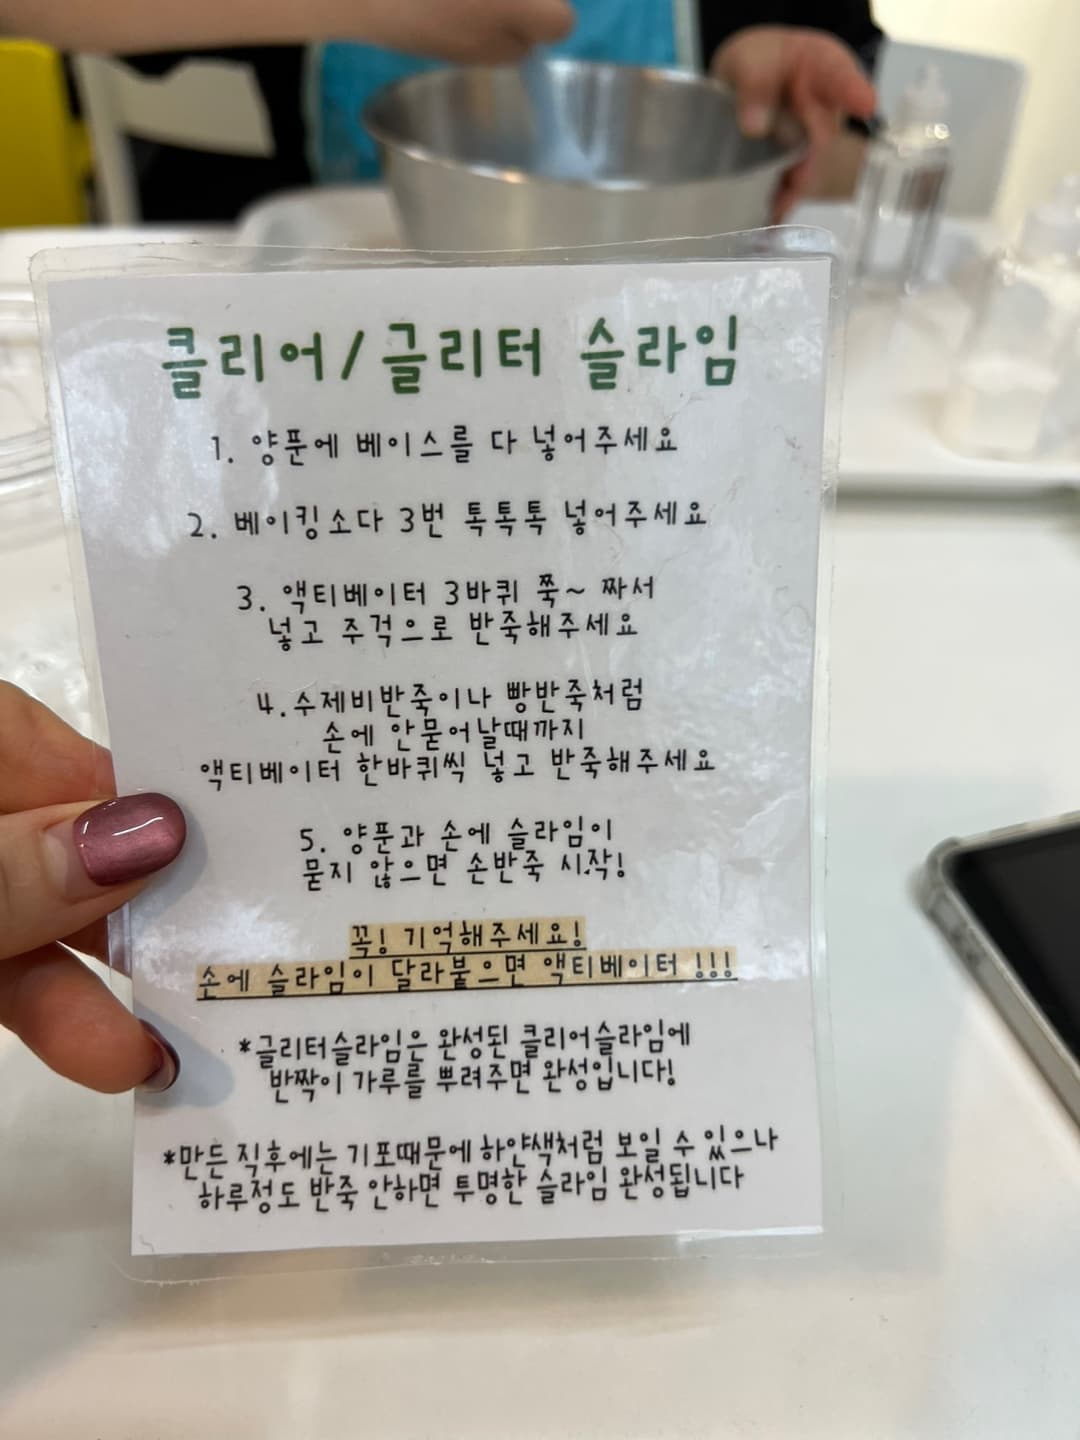 클리어/글리터 슬라임
1. 양푼에 베이스를 다 넣어주세요
2. 베이킹소다 3번 톡톡톡 넣어주세요
3. 액티베이터 3바퀴 쭉~ 짜서
넣고 주걱으로 반죽해주세요
4. 수제비반죽이나 빵반죽처럼
손에 안묻어날때까지
액티베이터 한바퀴씩 넣고 반죽해주세요
5. 양푼과 손에 슬라임이
묻지 않으면 손반죽 시작!
꼭! 기억해주세요!
손에 슬라임이 달라붙으면 액티베이터 !!!
*글리터슬라임은 완성된 클리어슬라임에
반짝이 가루를 뿌려주면 완성입니다!
*만든 직후에는 기포때문에 하얀색처럼 보일 수 있으나
하루정도 반죽 안하면 투명한 슬라임 완성됩니다